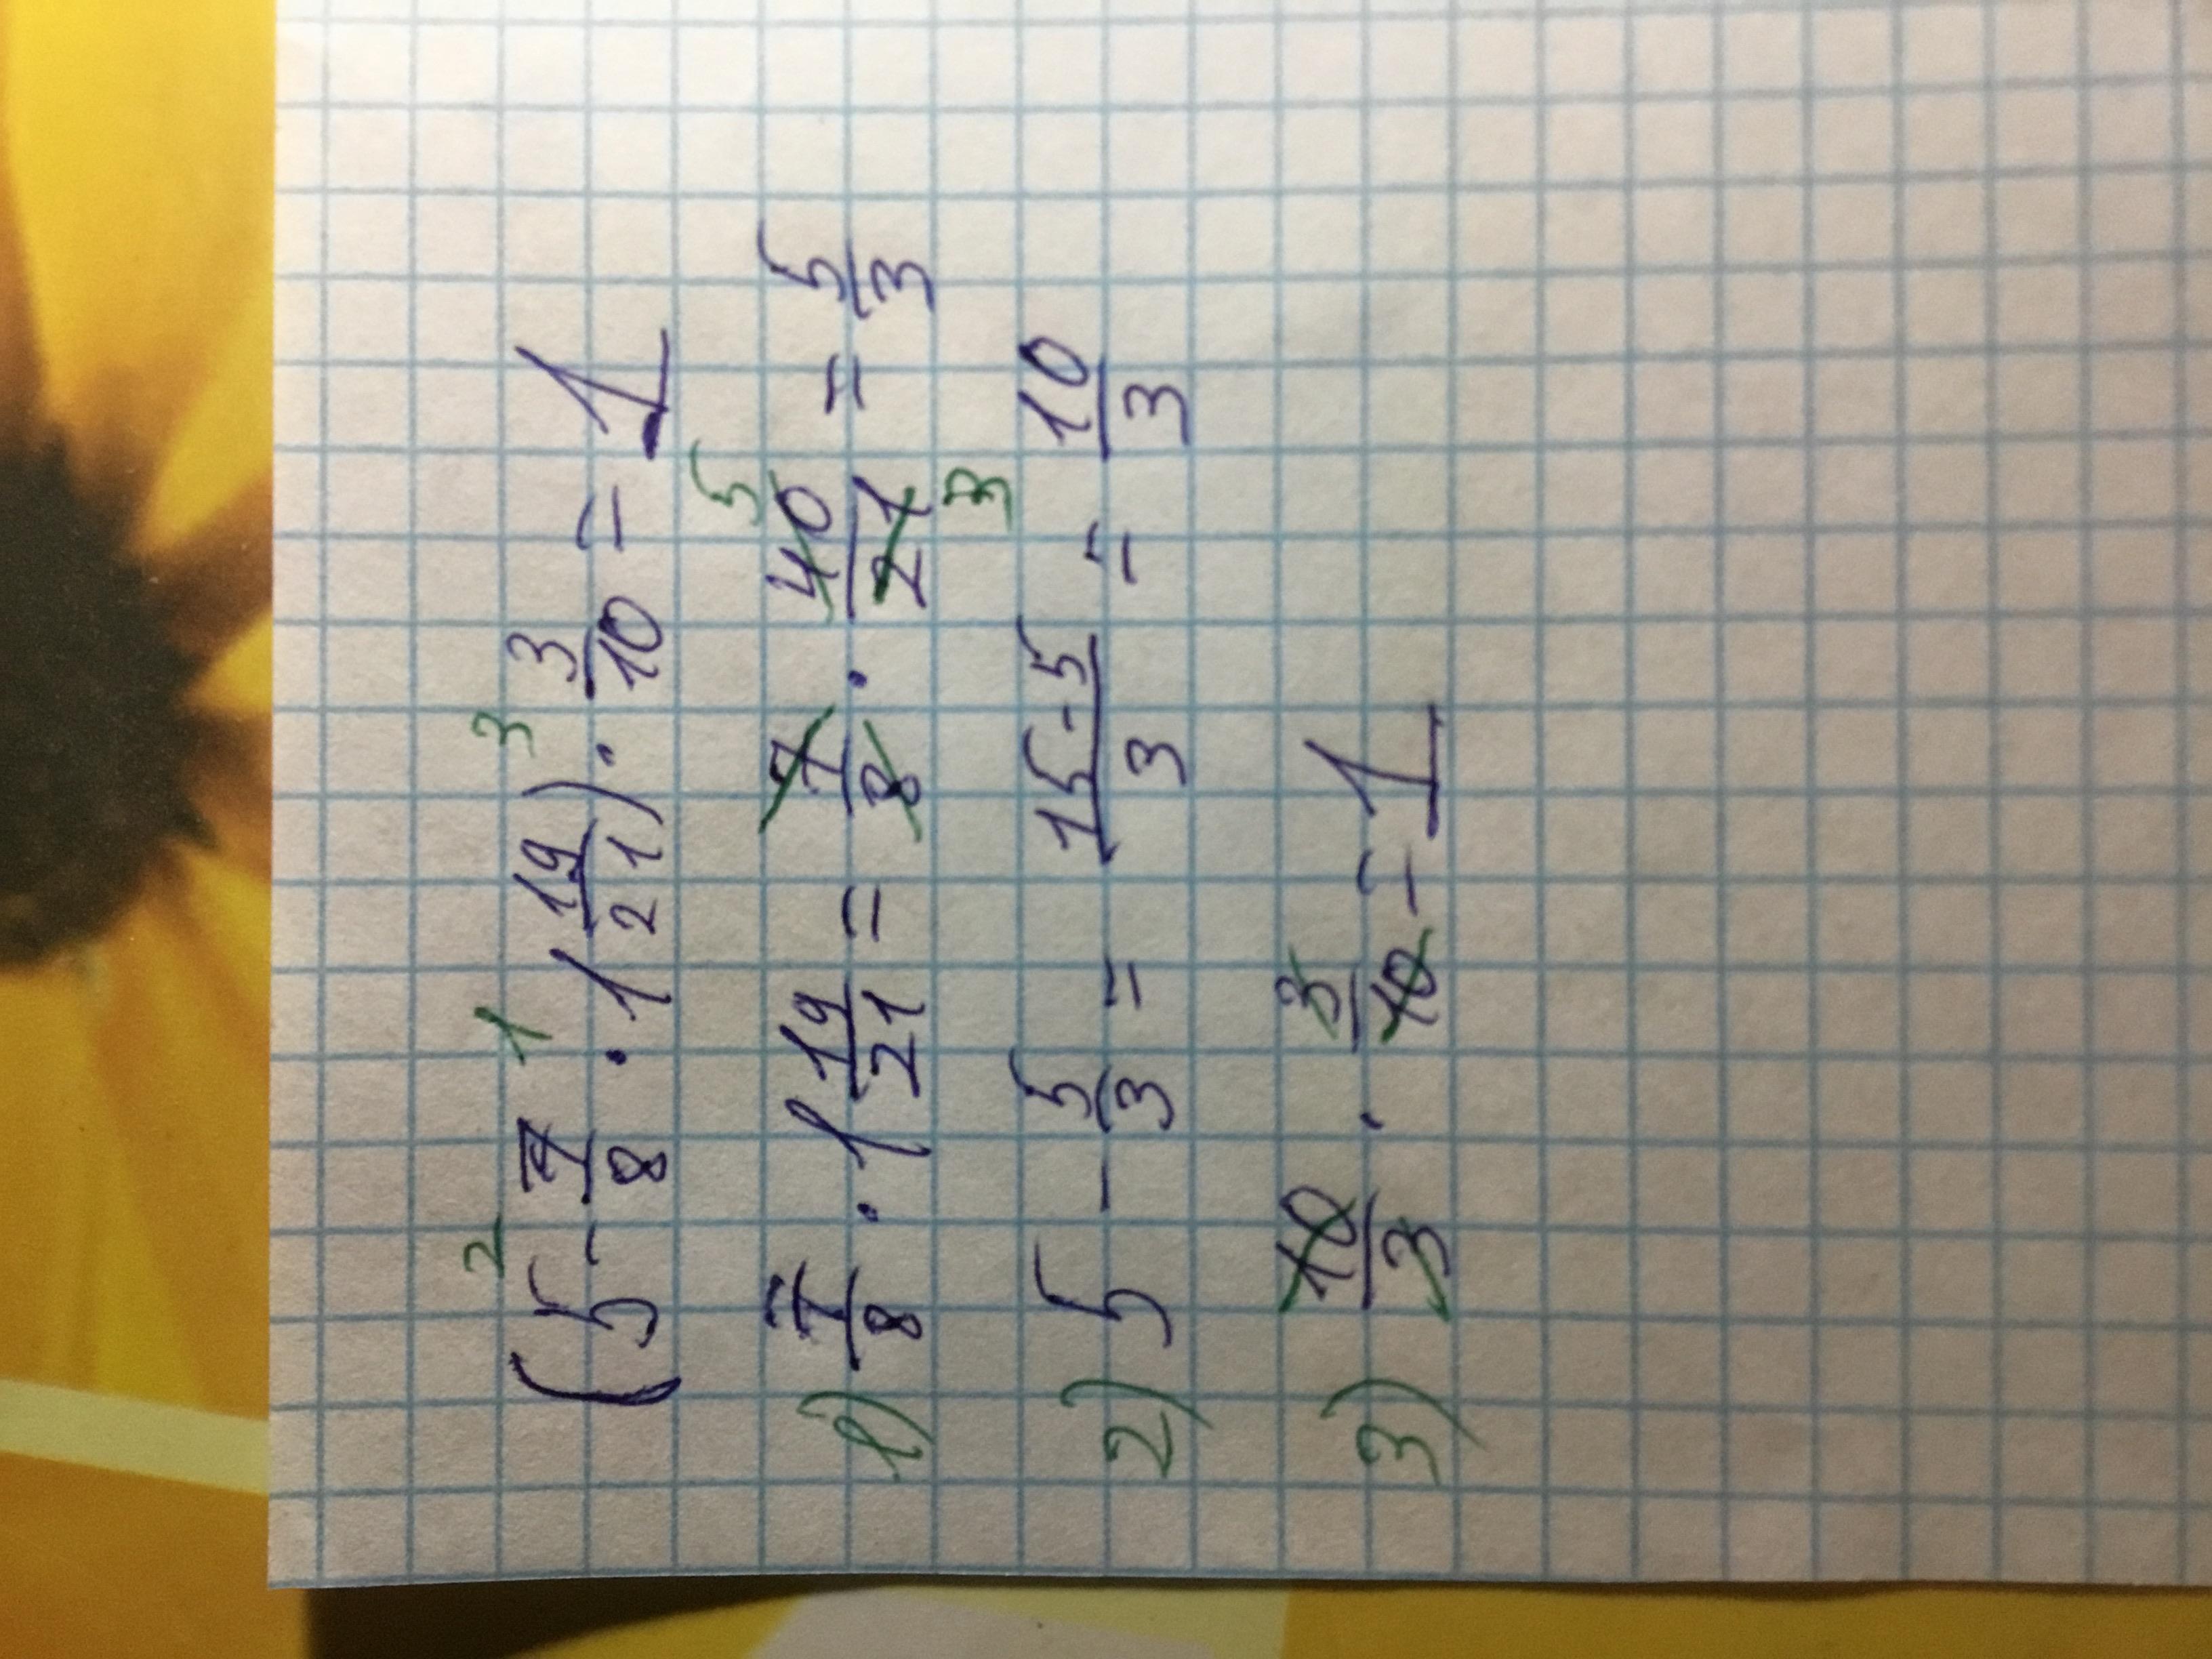 2 1 3
(5 - 7/8 · 1 19/21) · 3/10 = 1
5
1) 7/8 · 1 19/21 = 7/8 · 40/21 = 5/3
3
2) 5 - 5/3 = 15-5/3 = 10/3
3) 10/3 · 3/10 = 1